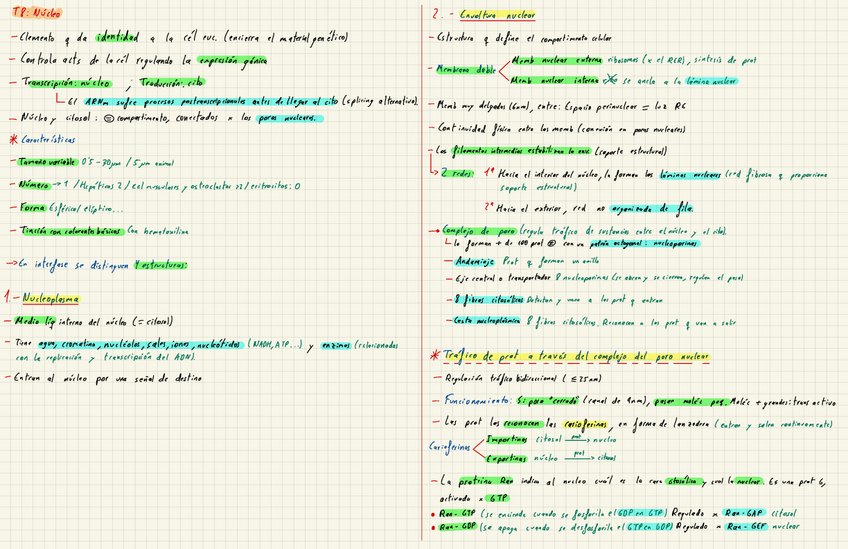 T8: Núcleo
- Elemento q da identidad a la cél euc. (encierra el material genético)
- Controla acts de la cél regulando la expresión génica
- Transcripción: núcleo ; Traducción: cito
El ARNm sufre procesos postranscripcionales antes de llegar al cito (splicing alternativo).
- Núcleo y citosol: compartimento, conectados x los poros nucleares.
* Características
- Tamaño variable 0'5-30µm / 5µm animal
- Número → 1 / Hepáticas 2 / Cel musculares y osteoclastos >2 / eritrocitos: 0
- Forma Esférico/elíptico...
- Tinción con colorantes básicos Con hematoxilina
→ En interfase se distinguen 4 estructuras:
1.- Nucleoplasma
- Medio líq interno del núcleo (= citosol)
- Tiene agua, cromatina, nucléolos, sales, iones, nucleótidos (NADH, ATP...) y enzimas (relacionadas
con la replicación y transcripción del ADN).
- Entran al núcleo por una señal de destino
2.- Envoltura nuclear
- Estructura q define el compartimento celular
- Membrana doble
Memb nuclear externa ribosomas (x el RER), síntesis de prot
Memb nuclear interna se ancla a la lámina nuclear
- Memb muy delgadas (6nm), entre: Espacio perinuclear = luz RE
- Continuidad física entre las memb (conexión en poros nucleares)
- Los filamentos intermedios estabilizan la env. (soporte estructural)
2 redes: 1ª Hacia el interior del núcleo, la forman las láminas nucleares (red fibrosa q proporciona
soporte estructural)
2ª Hacia el exterior, red no organizada de fila.
→ Complejo de poro (regula tráfico de sustancias entre el núcleo y el cito).
Lo forman + de 100 prot con un patrón octogonal: nucleoporinas
- Andamiaje Prot q forman un anillo
- Eje central o transportador 8 nucleoporinas (se abren y se cierran, regulan el paso)
- 8 fibras citosólicas Detectan y unen a las prot q entran
- Cesta nucleoplásmica 8 fibras citosólicas. Reconocen a las prot q van a salir
* Tráfico de prot a través del complejo del poro nuclear
- Regulación tráfico bidireccional (≤25nm)
- Funcionamiento: Si poro "cerrado" (canal de 9nm), pasan moléc peq. Moléc + grandes: trans activo
- Las prot las reconocen las carioferinas, en forma de lanzadera (entran y salen continuamente)
Carioferinas
Importinas citosol prot→ nucleo
Exportinas núcleo prot→ citosol
- La proteína Ran indica al nucleo cuál es la cara citosólica y cual la nuclear. Es una prot G,
activada x GTP
• Ran-GTP (se enciende cuando se fosforila el GDP en GTP) Regulado x Ran-GAP citosol
• Ran-GDP (se apaga cuando se desfosforila el GTP en GDP) Regulado x Ran-GEF nuclear